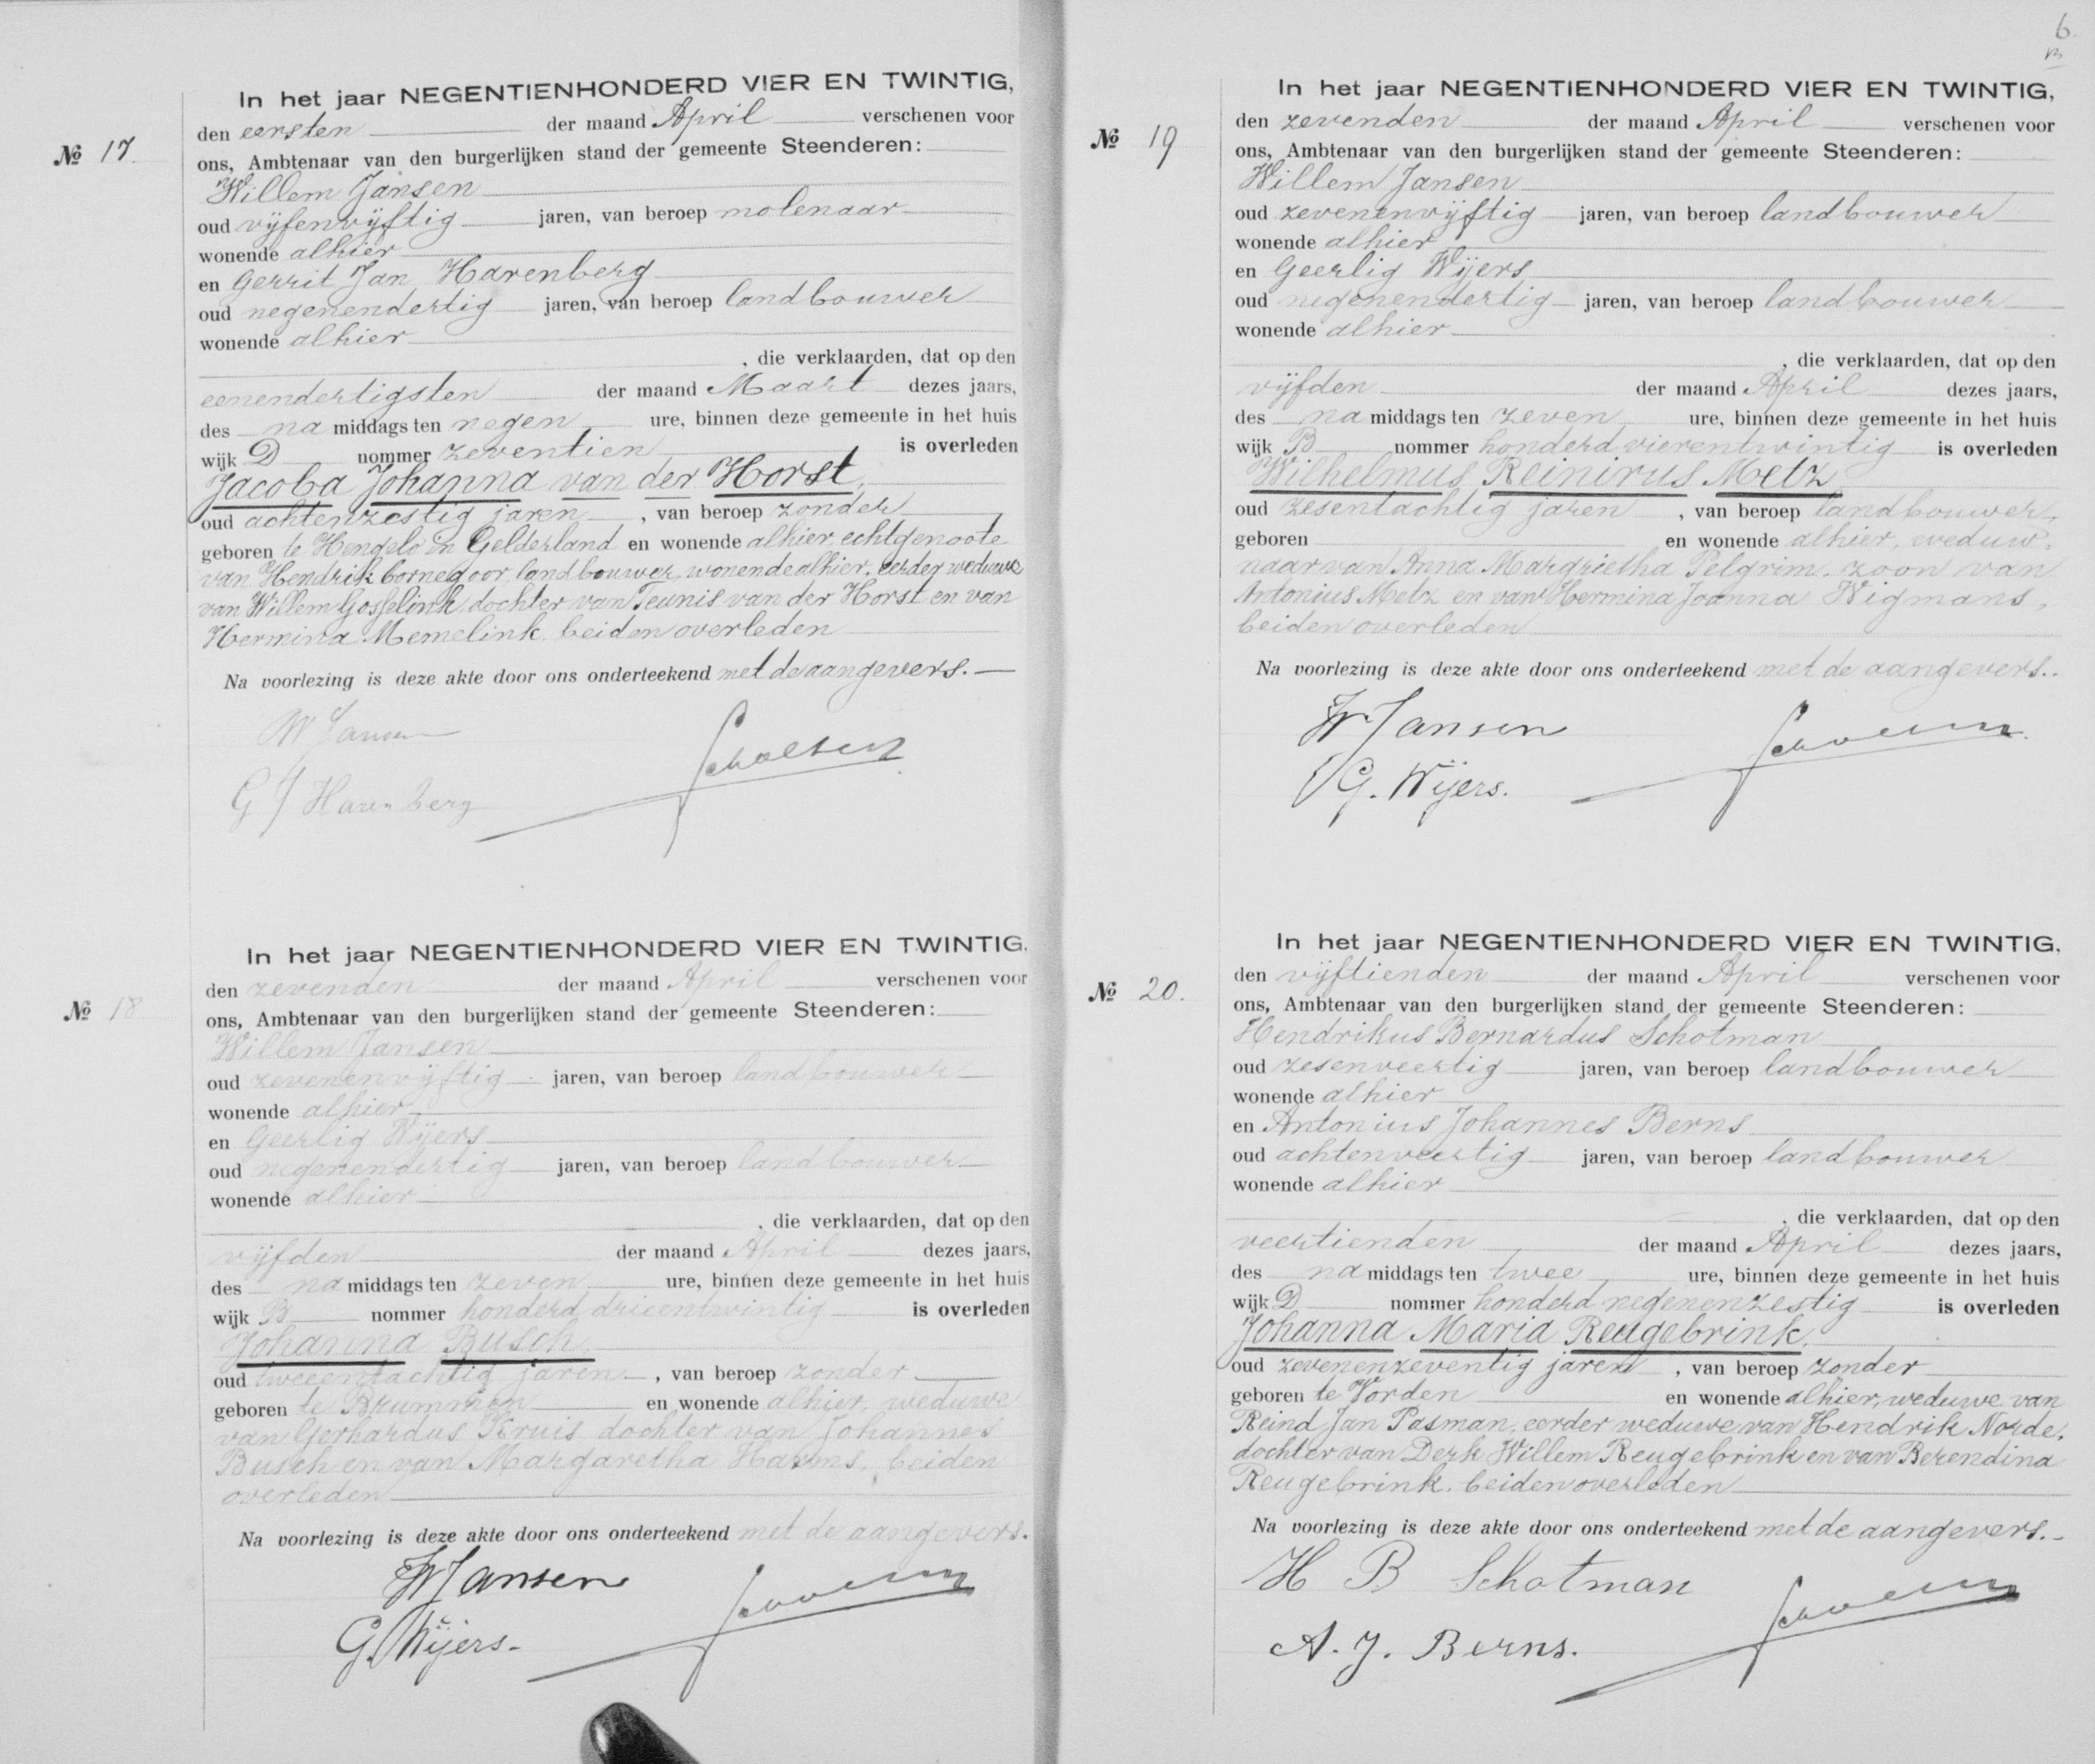 № 17.
In het jaar NEGENTIENHONDERD VIER EN TWINTIG,
den eersten der maand April verschenen voor
ons, Ambtenaar van den burgerlijken stand der gemeente Steenderen:
Willem Jansen
oud vijfenvijftig jaren, van beroep molenaar
wonende alhier
en Gerrit Jan Harenberg
oud negenendertig jaren, van beroep landbouwer
wonende alhier
, die verklaarden, dat op den
eenendertigsten der maand Maart dezes jaars,
des na middags ten negen ure, binnen deze gemeente in het huis
wijk D nommer zeventien is overleden
Jacoba Johanna van der Horst,
oud achtenzestig jaren, van beroep zonder
geboren te Hengelo in Gelderland en wonende alhier, echtgenoote
van Hendrik Bornegoor, landbouwer, wonende alhier, eerder weduwe
van Willem Gosselink, dochter van Teunis van der Horst en van
Hermina Memelink, beiden overleden
Na voorlezing is deze akte door ons onderteekend met de aangevers.
W Jansen
G J Harenberg
№ 18
In het jaar NEGENTIENHONDERD VIER EN TWINTIG,
den zevenden der maand April verschenen voor
ons, Ambtenaar van den burgerlijken stand der gemeente Steenderen:
Willem Jansen
oud zevenenvijftig jaren, van beroep landbouwer
wonende alhier
en Geerlig Wijers
oud negenendertig jaren, van beroep landbouwer
wonende alhier
, die verklaarden, dat op den
vijfden der maand April dezes jaars,
des na middags ten zeven ure, binnen deze gemeente in het huis
wijk B nommer honderd drieentwintig is overleden
Johanna Busch,
oud tweeentachtig jaren, van beroep zonder
geboren te Brummen en wonende alhier, weduwe
van Gerhardus Kruis, dochter van Johannes
Busch en van Margaretha Harms, beiden
overleden
Na voorlezing is deze akte door ons onderteekend met de aangevers.
W Jansen
G. Wijers.
6
№ 19
In het jaar NEGENTIENHONDERD VIER EN TWINTIG,
den zevenden der maand April verschenen voor
ons, Ambtenaar van den burgerlijken stand der gemeente Steenderen:
Willem Jansen
oud zevenenvijftig jaren, van beroep landbouwer
wonende alhier
en Geerlig Wijers
oud negenendertig jaren, van beroep landbouwer
wonende alhier
, die verklaarden, dat op den
vijfden der maand April dezes jaars,
des na middags ten zeven ure, binnen deze gemeente in het huis
wijk B nommer honderd vierentwintig is overleden
Wilhelmus Reinirus Metz
oud zesentachtig jaren, van beroep landbouwer,
geboren en wonende alhier, weduw-
naar van Anna Margrietha Pelgrim, zoon van
Antonius Metz en van Hermina Joanna Wigmans,
beiden overleden
Na voorlezing is deze akte door ons onderteekend met de aangevers.
W Jansen
G. Wijers.
№ 20.
In het jaar NEGENTIENHONDERD VIER EN TWINTIG,
den vijftienden der maand April verschenen voor
ons, Ambtenaar van den burgerlijken stand der gemeente Steenderen:
Hendrikus Bernardus Schotman
oud zesenveertig jaren, van beroep landbouwer
wonende alhier
en Antonius Johannes Berns
oud achtenveertig jaren, van beroep landbouwer
wonende alhier
, die verklaarden, dat op den
veertienden der maand April dezes jaars,
des na middags ten twee ure, binnen deze gemeente in het huis
wijk D nommer honderd negenenzestig is overleden
Johanna Maria Reugebrink,
oud zevenenzeventig jaren, van beroep zonder
geboren te Vorden en wonende alhier, weduwe van
Reind Jan Pasman, eerder weduwe van Hendrik Norde,
dochter van Derk Willem Reugebrink en van Berendina
Reugebrink, beiden overleden
Na voorlezing is deze akte door ons onderteekend met de aangevers.
H B Schotman
A. J. Berns.